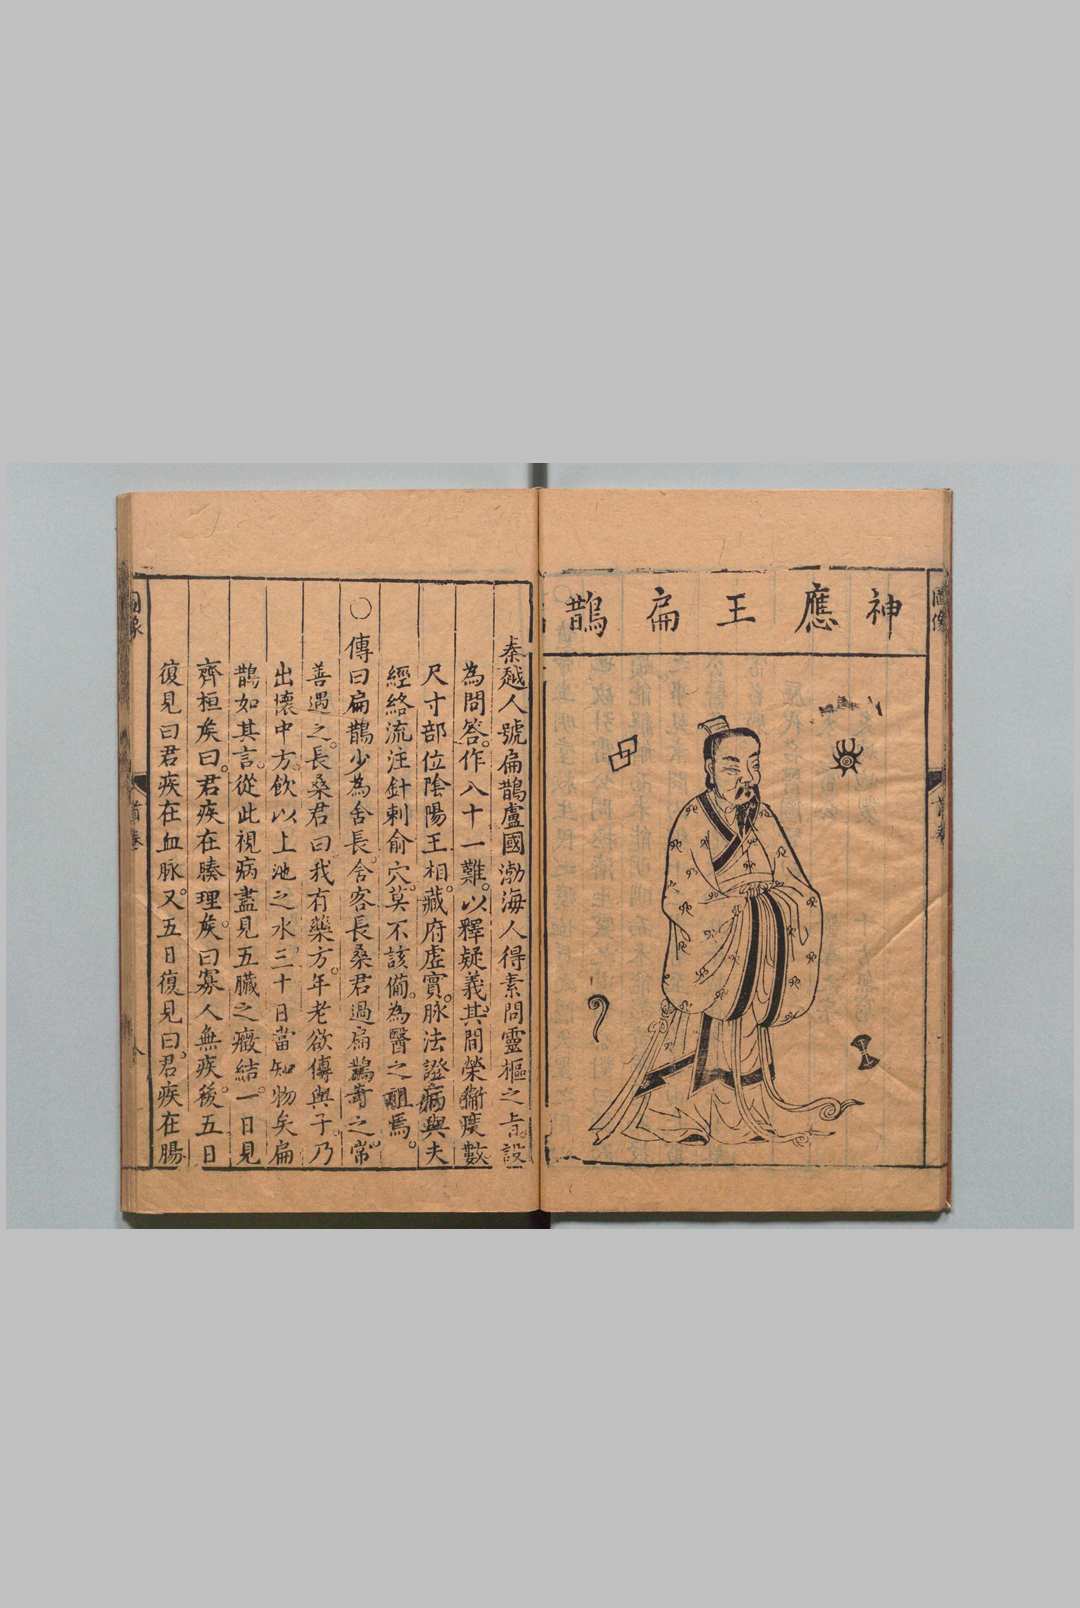 神應王扁鵲
秦越人號扁鵲盧國渤海人得素問靈樞之㫖設
為問答作八十一難以釋疑義其間榮衞度數
尺寸部位陰陽王相藏府虛實脉法證病與夫
經絡流注針刺俞穴莫不該備為醫之祖焉
○傳曰扁鵲少為舍長舍客長桑君過扁鵲奇之常
善遇之長桑君曰我有藥方年老欲傳與子乃
出懷中方飲以上池之水三十日當知物矣扁
鵲如其言從此視病盡見五臟之癥結一日見
齊桓矦曰君疾在腠理矦曰寡人無疾後五日
復見曰君疾在血脉又五日復見曰君疾在腸
圖像
首卷